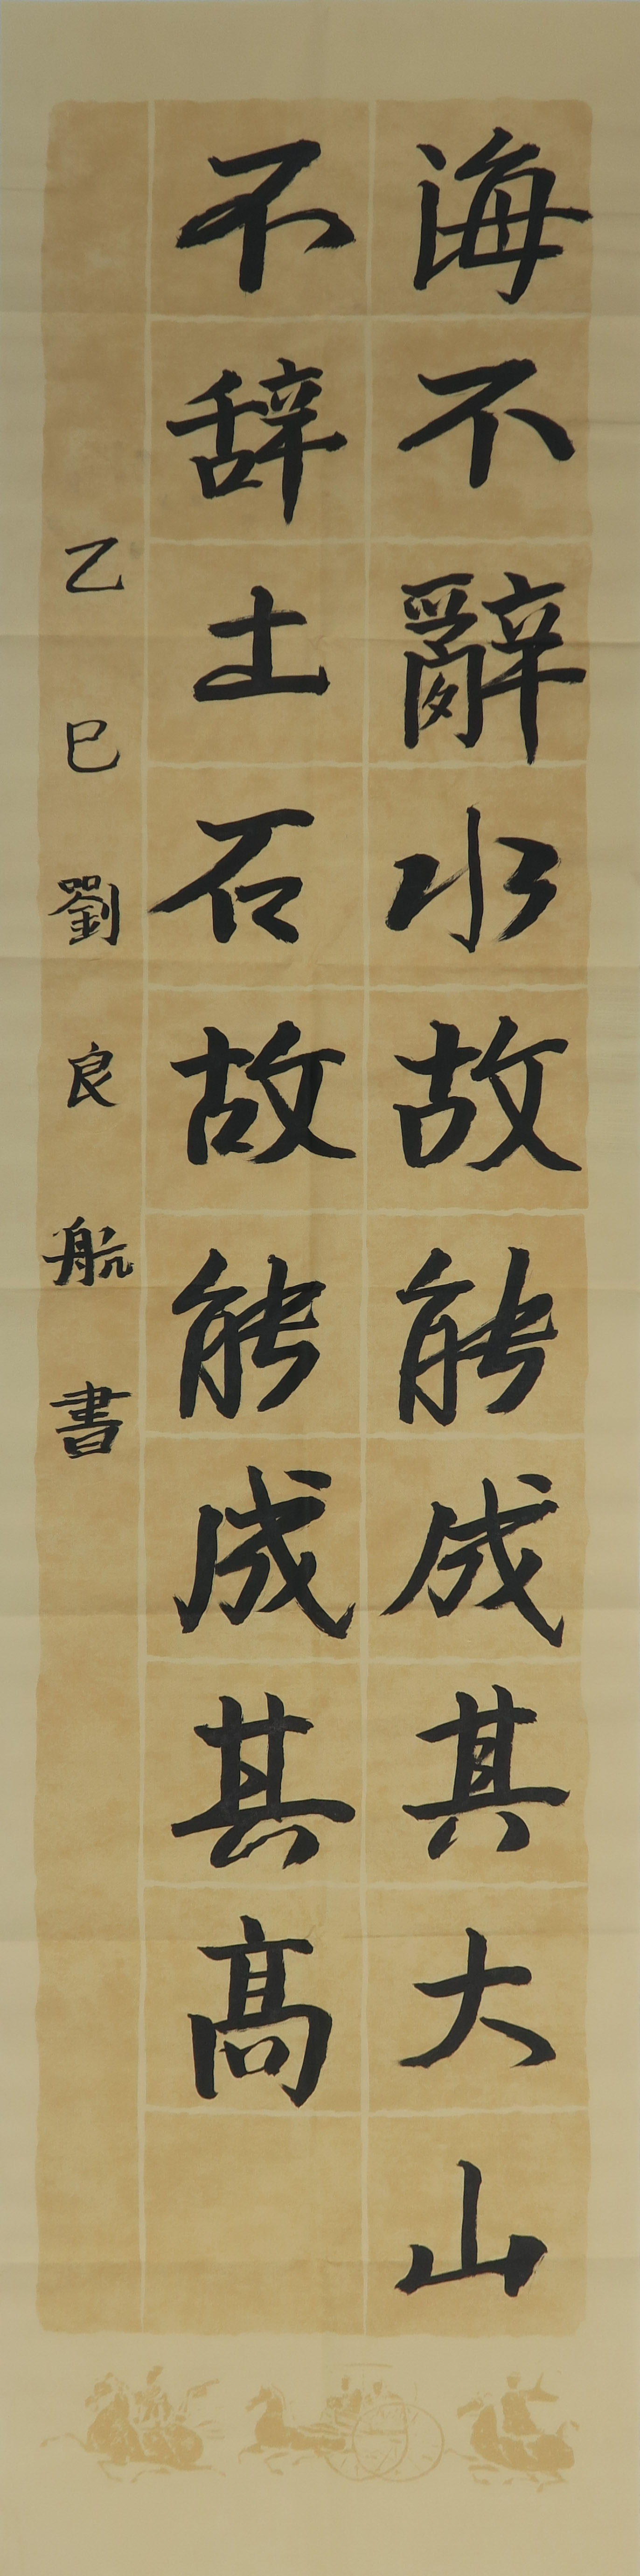 海不辭水故能成其大山
不辞土石故能成其高
乙巳劉良航書